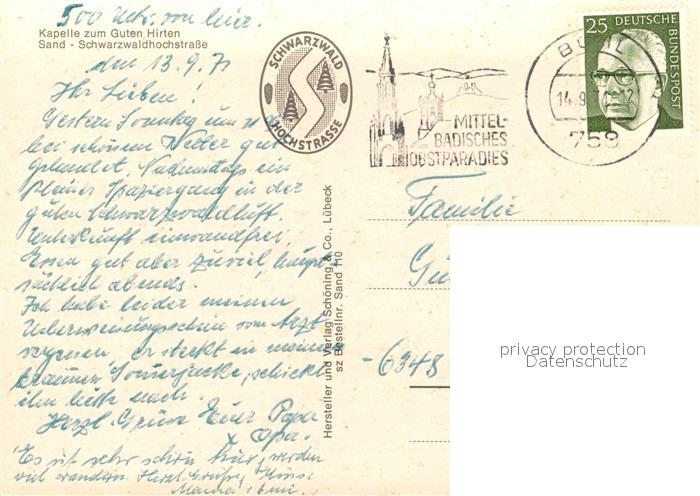 500 Mtr. von hier.
Kapelle zum Guten Hirten
Sand - Schwarzwaldhochstraße
den 13.9.71
Ihr Lieben!
Gestern Sonntag um
bei schönem Wetter gut
gelandet. Nachmittags ein
kleiner Spaziergang in der
guten Schwarzwaldluft.
Unterkunft einwandfrei,
Essen gut aber zuviel, haupt-
sächlich abends.
Ich habe leider meinen
Überweisungsschein vom Arzt
vergessen. Er steckt in meiner
braunen Jacke, schickt
ihn bitte nach.
Herzl. Grüsse Euer Papa
Opa.
Es ist sehr schön hier, werden
viel wandern Herzl. Grüße,
Mama
Hersteller und Verlag Schöning & Co., Lübeck
sz Bestellnr. Sand 110
SCHWARZWALD
HOCHSTRASSE
MITTEL-
BADISCHES
OBSTPARADIES
BÜHL
14.9.
758
25 DEUTSCHE
BUNDESPOST
Familie
-6348
privacy protection
Datenschutz